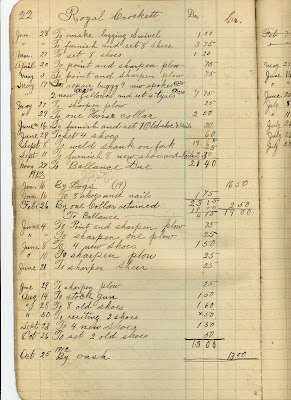 22 Royal Crockett Dec. Cr.
Jan. 28 To make logging Swivel 1.00
To furnish and set 8 shoes 3 75
Mar. 27 To set 4 shoes 1
April 20 To point and sharpen plow 75
May 8 To point and sharpen plow 75
May 17 To repair buggy 9 new spokes
2 new and set 4 tyres 7 75
May 27 To sharpen plow 25
" 29 To one Horse collar 2 50
June 16 To furnish and set
June 28 To set 4 shoes 60
Sept 8 To weld shank on fork
Sept 11 To furnish 8 new shoes and
Nov 27 To Ballange Due 21 40
1912
Jan. 16 By Hogs (19) 16 50
Jan 18 To 8 shoes and nails 1 75
Feb 26 By one Collar returned 23 15 2 50
To Ballance 4 15 19 00
June 4 To Point and sharpen plow 75
" " To sharpen one plow 25
June 8 To 4 new shoes 1 50
" 10 To sharpen plow 25
June 21 To sharpen Sheer 25
June 29 To sharpen plow 25
Aug 14 To stock gun 1 00
" 28 To 8 old shoes 1 60
" 30 To reseting 2 shoes 50
Sept 23 To 4 new shoes 1 50
Oct 26 To set 2 old shoes 50
13 00
1912
Oct 25 By cash 13 00
Feb 7
May
June
July
July
July